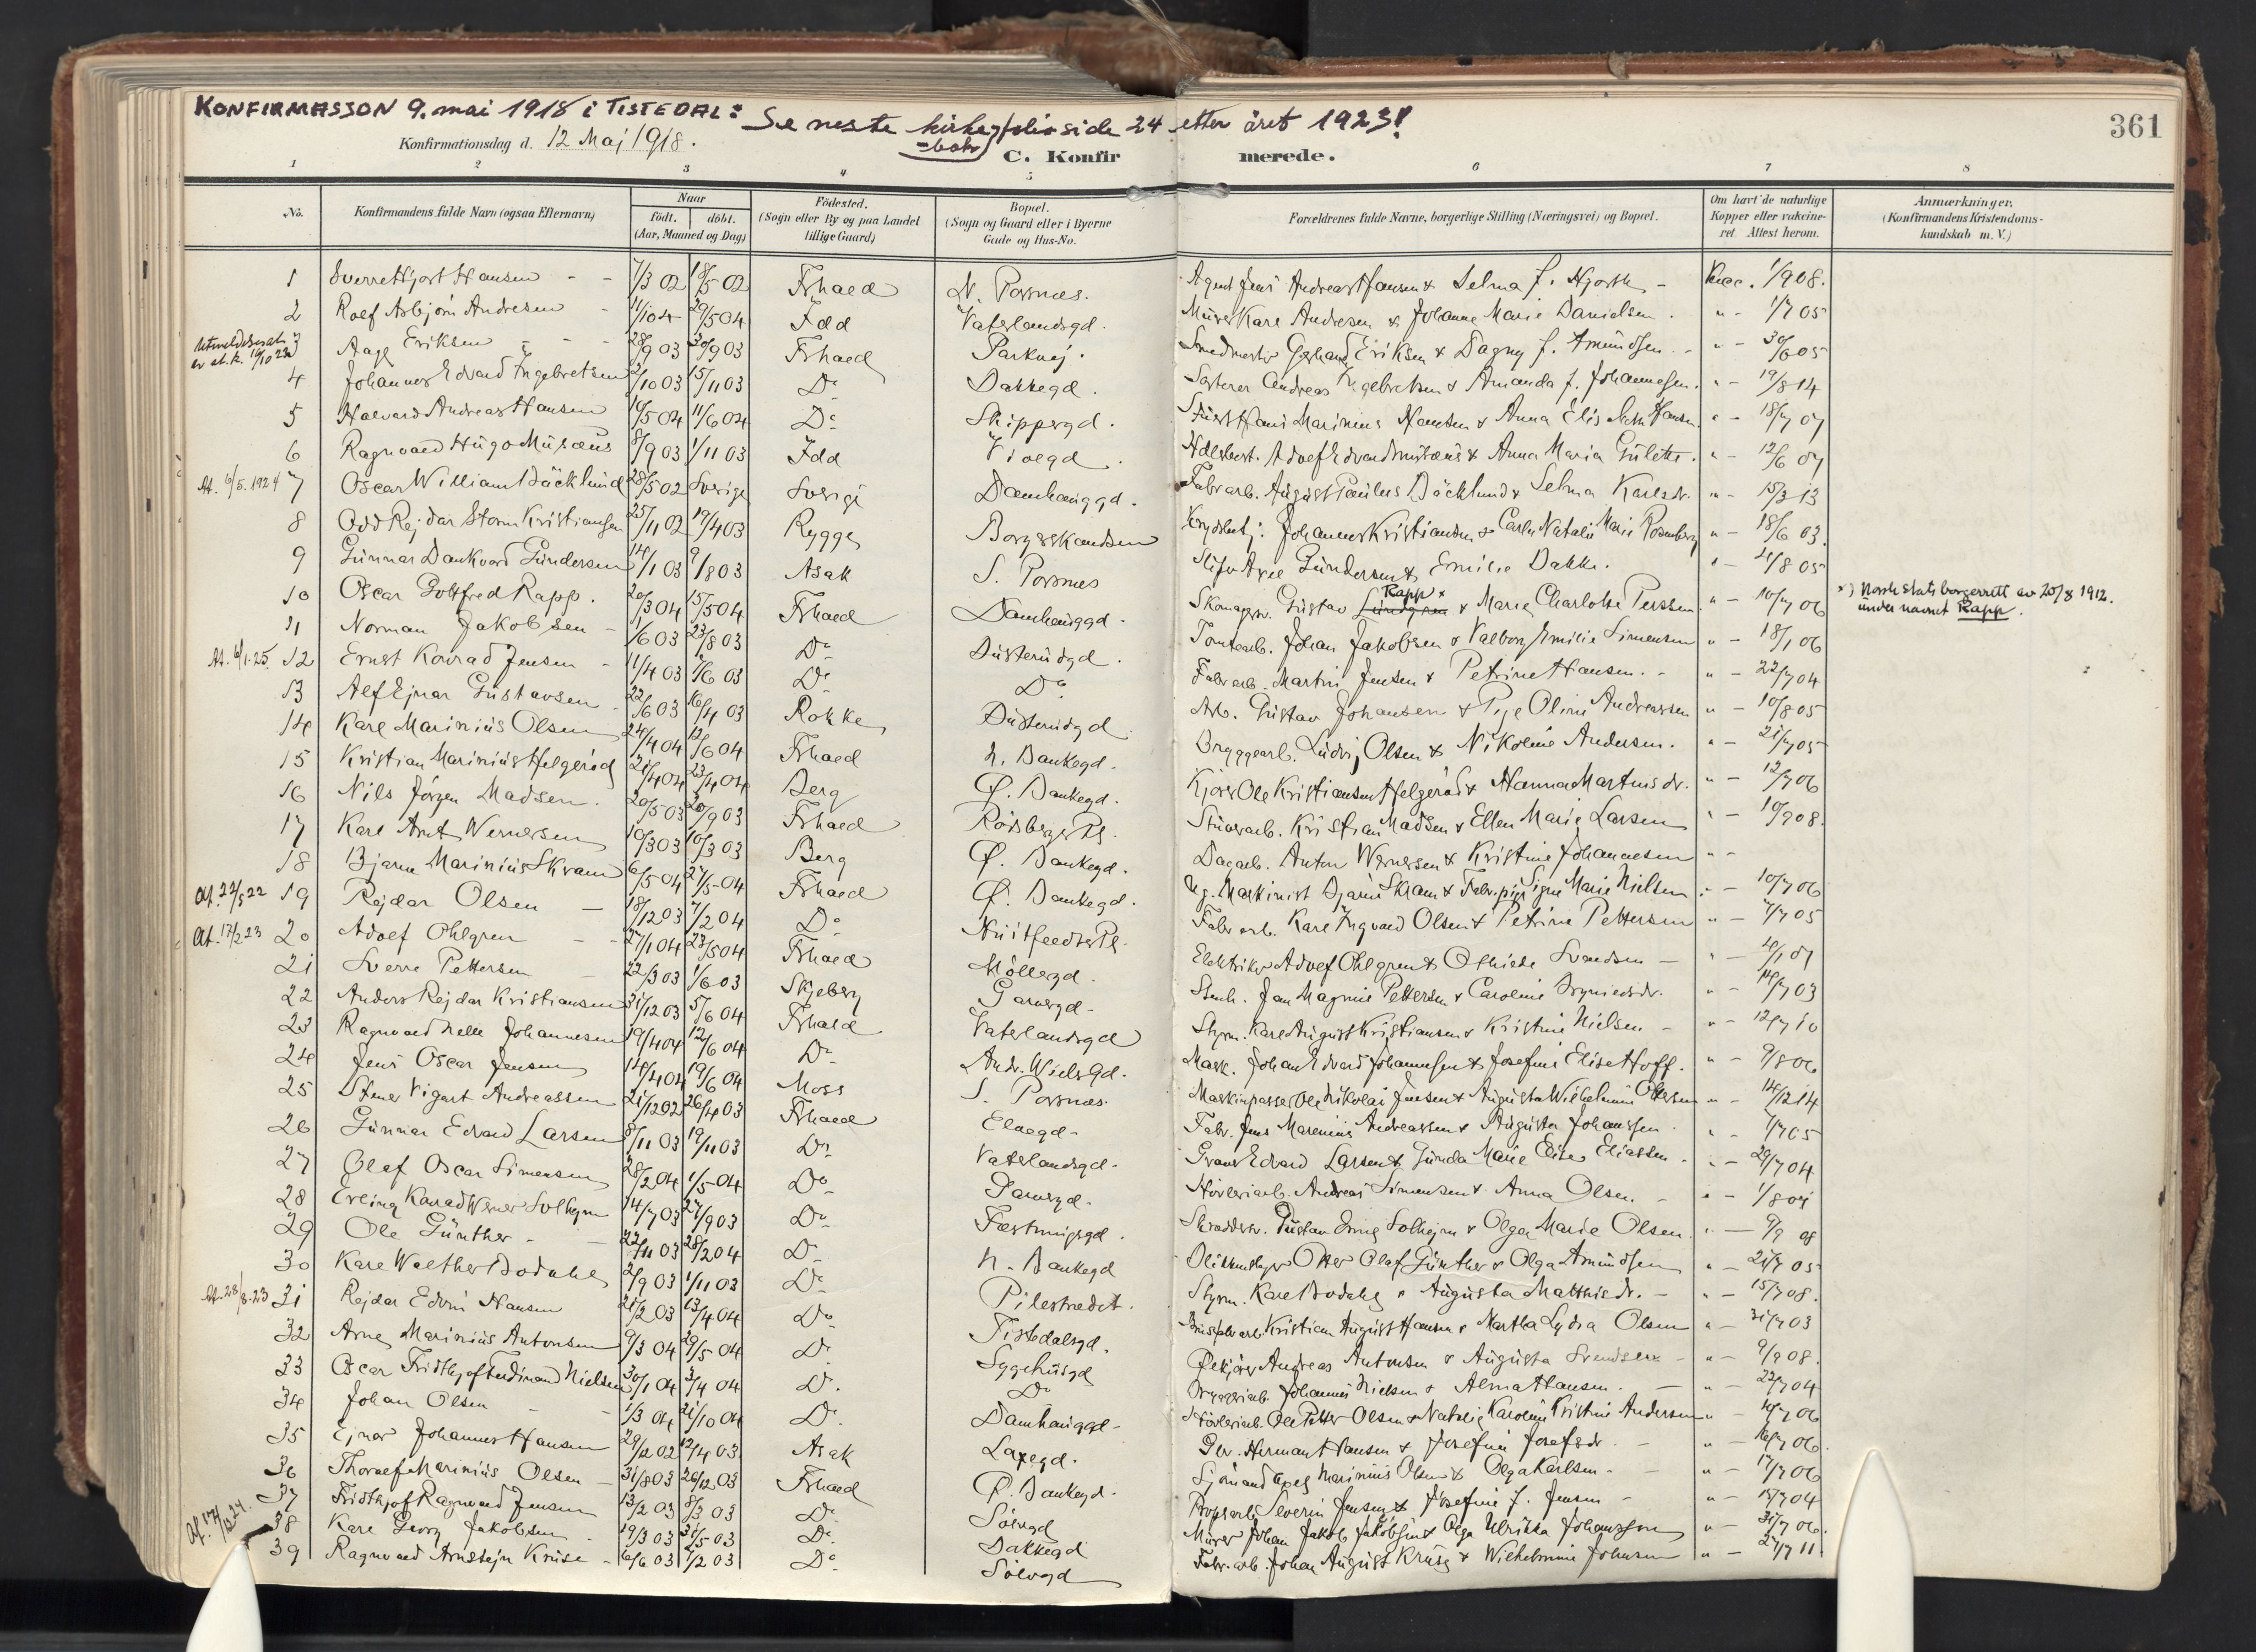 KONFIRMASJON 9. mai 1918 i TISTEDAL: Se neste kirke- side 24 etter året 1923!
-bok
361
Konfirmationsdag d. 12 Maj 1918.
C. Konfirmerede.
1 2 3 4 5 6 7 8
No. Konfirmandens fulde Navn (ogsaa Efternavn) Naar født. døbt. (Aar, Maaned og Dag) Fødested. (Sogn eller By og paa Landet tillige Gaard) Bopæl. (Sogn og Gaard eller i Byerne Gade og Hus-No. Forældrenes fulde Navne, borgerlige Stilling (Næringsvei) og Bopæl. Om havt de naturlige Kopper eller vakcineret Attest herom. Anmærkninger. (Konfirmandens Kristendomskundskab m. V.)
1 Sverre Hjort Hansen 7/3 02 18/5 02 Frhald N. Porsnes. Agent Jens Andreas Hansen & Selma f. Hjorth Vacc. 1/9 08.
2 Rolf Asbjørn Andresen 11/1 04 29/5 04 Idd Vaterlandsgd. Murer Karl Andresen & Johanne Marie Danielsen. " - 1/7 05
3 Aage Eriksen 28/9 03 30/9 03 Frhald Parkvej. Smedmester Gerhard Eriksen & Dagny f. Amundsen " - 30/6 05
4 Johannes Edvard Ingebretsen 2/10 03 15/11 03 Do Bakkegd. Sorterer Andreas Ingebretsen & Amanda f. Johannesen. " - 19/8 14
5 Halvard Andreas Hansen 10/5 04 11/6 04 Do Skippergd. Hans Marinius Hansen & Anna Elis Hansen " - 18/7 07
6 Ragnvald Hugo Musæus 8/9 03 1/11 03 Idd Violgd. Adolf Edvard Musæus & Anna Maria " - 12/6 07
At. 6/5. 1924 7 Oscar William Bäcklund 28/5 02 Sverige Sverige Damhauggd. Fabr arb. August Paulus Bäcklund & Selma Karlsdr. " - 15/3 13
8 Odd Rejdar Storm Kristiansen 25/11 02 19/4 03 Rygge Borgerskandsen Johannes Kristiansen & Carla Natalie Marie Rosenberg " - 18/6 03.
9 Gunnar Dankvard Gundersen 14/1 03 9/8 03 Asak S. Porsnes Sliber Axel Gundersen & Emilie Bakke. " - 4/8 05
10 Oscar Gottfred Rapp. 20/3 04 15/5 04 Frhald Damhauggd. Skomagersv. Gustav Lundgren Rapp x & Marie Charlotte Perssen " - 10/7 06 x) Norsk statsborgerrett av 20/8 1912. under navnet Rapp.
11 Norman Jakobsen 1/6 03 23/8 03 Do Busterudgd. Tomtearb. Johan Jakobsen & Valborg Emilie Simensen " - 18/1 06
At. 6/1. 25. 12 Ernst Konrad Jensen 11/4 03 7/6 03 Do Do Fabr arb. Martin Jensen & Petrine Hansen. " - 22/7 04
13 Alf Ejnar Gustavsen 22/6 03 16/4 03 Rokke Busterudgd Arb. Gustav Johansen & Pige Oline Andreassen " - 10/8 05
14 Karl Marinius Olsen 24/4 04 13/6 04 Frhald N. Bankegd. Bryggearb. Ludvig Olsen & Nikoline Andersen. " - 21/7 05
15 Kristian Marinius Helgerød 21/4 04 23/4 04 Berg Ø. Bankegd. Kjører Ole Kristiansen Helgerød & Hanna Martinsdr. " - 12/7 06
16 Nils Jørgen Madsen. 20/5 03 20/9 03 Frhald Rødsberg Pl. Stuerarb. Kristian Madsen & Ellen Marie Larsen " - 10/9 08.
17 Karl Arnt Wernersen 10/3 03 10/3 03 Berg Ø. Bankegd. Dagarb. Anton Wernersen & Kristine Johannesen " -
18 Bjarne Marinius Skram 6/5 04 27/5 04 Frhald Ø. Bankegd. Ug. Maskinist Bjarne Skram & Fabr. pige Signe Marie Nielsen " - 10/7 06
At. 22/5 22 19 Rejdar Olsen 18/12 03 7/2 04 Do Fabr arb. Karl Ingvald Olsen & Petrine Pettersen " - 7/7 05
At. 17/2 23 20 Adolf Ohlgren 27/1 04 23/5 04 Frhald Møllegd. Elektriker Adolf Ohlgren & Othilde Svendsen " - 4/1 07
21 Sverre Pettersen 22/3 03 1/6 03 Skjeberg Garvergd. Stenh. Jan Magnus Pettersen & Caroline " - 14/7 03
22 Anders Rejdar Kristiansen 31/12 03 5/6 04 Frhald Vaterlandsgd Styrm. Karl August Kristiansen & Kristine Nielsen " - 12/7 10
23 Ragnvald Johannesen 19/4 04 12/6 04 Do Andr. Wiels Gd. Mask. Johan Edvard Johannesen & Josefine Elise Hoff. " - 9/8 06
24 Jens Oscar Jensen 14/4 04 19/6 04 Moss S. Porsnes. Maskinpasser Ole Nikolai Jensen & Augusta Wilhelmine Olsen " - 14/12 14
25 Stener Vigart Andreassen 21/12 02 26/4 03 Frhald Elvegd. Fabr. Jens Marenius Andreassen & Augusta Johanssen. " - 7/7 05
26 Gunnar Edvard Larsen 8/11 03 19/11 03 Do Vaterlandsgd. Edvard Larsen & Gunda Marie Elise Eliassen " - 29/7 04
27 Olaf Oscar Simensen 28/2 04 1/5 04 Do Garvergd. Høvleriarb. Andreas Simensen & Anna Olsen " - 1/8 04
28 Erling Konrad Werner Solhejm 14/7 03 27/9 03 Do Fæstningsgd. Skræddersv. Gustav Solhejm & Olga Marie Olsen. " - 9/9 08
29 Ole Günther 22/11 03 28/2 04 Do N. Bankegd Blikkenslager Otter Olaf Günther & Olga Amundsen " - 21/7 05
30 Karl Walther Bodahl 2/9 03 1/11 03 Do Pilestrædet. Styrm. Karl Bodahl & Augusta Mathisdr. " - 15/7 08.
At. 28/8. 23 31 Rejdar Edvin Hansen 21/2 03 13/4 04 Do Tistedalsgd. Kristian August Hansen & Martha Lydia Olsen " - 31/7 03
32 Arne Marinius Antonsen 9/3 04 29/5 04 Do Sygehusgd Ølkjører Andreas Antonsen & Augusta Svendsen " - 9/9 08.
33 Oscar Fridthjof Ferdinand Nielsen 30/1 04 3/4 04 Do Do Bryggeriarb. Johannes Nielsen & Alma Hansen. " - 22/7 04
34 Johan Olsen 1/3 04 21/10 04 Do Damhauggd. Høvleriarb. Ole Petter Olsen & Natalie Karoline Kristine Andersen " - 10/7 06
35 Ejnar Johannes Hansen 29/12 02 12/4 03. Asak Laxegd. Herman Hansen & Josefine Josefsdr. " - 16/7 06.
36 Thoralf Marinius Olsen 31/8 03 26/12 03 Frhald Ø. Bankegd. Sjømand Axel Marinius Olsen & Olga Karlsen. " - 17/7 06
37 Fridthjof Ragnvald Jensen 13/2 03 8/3 03 Do Sølvgd Severin Jensen & Josefine f. Jensen " - 15/7 04
38 Karl Georg Jakobsen 19/3 03 31/5 03 Do Bakkegd Murer Johan Jakob Jakobsen & Olga Ulrikka Johansson " - 31/7 06.
39 Ragnvald Arnstejn Kruse 6/6 03 1/2 03 Do Sølvgd Fabr. arb. Johan August Kruse & Wilhelmine Johnsen " - 27/7 11.